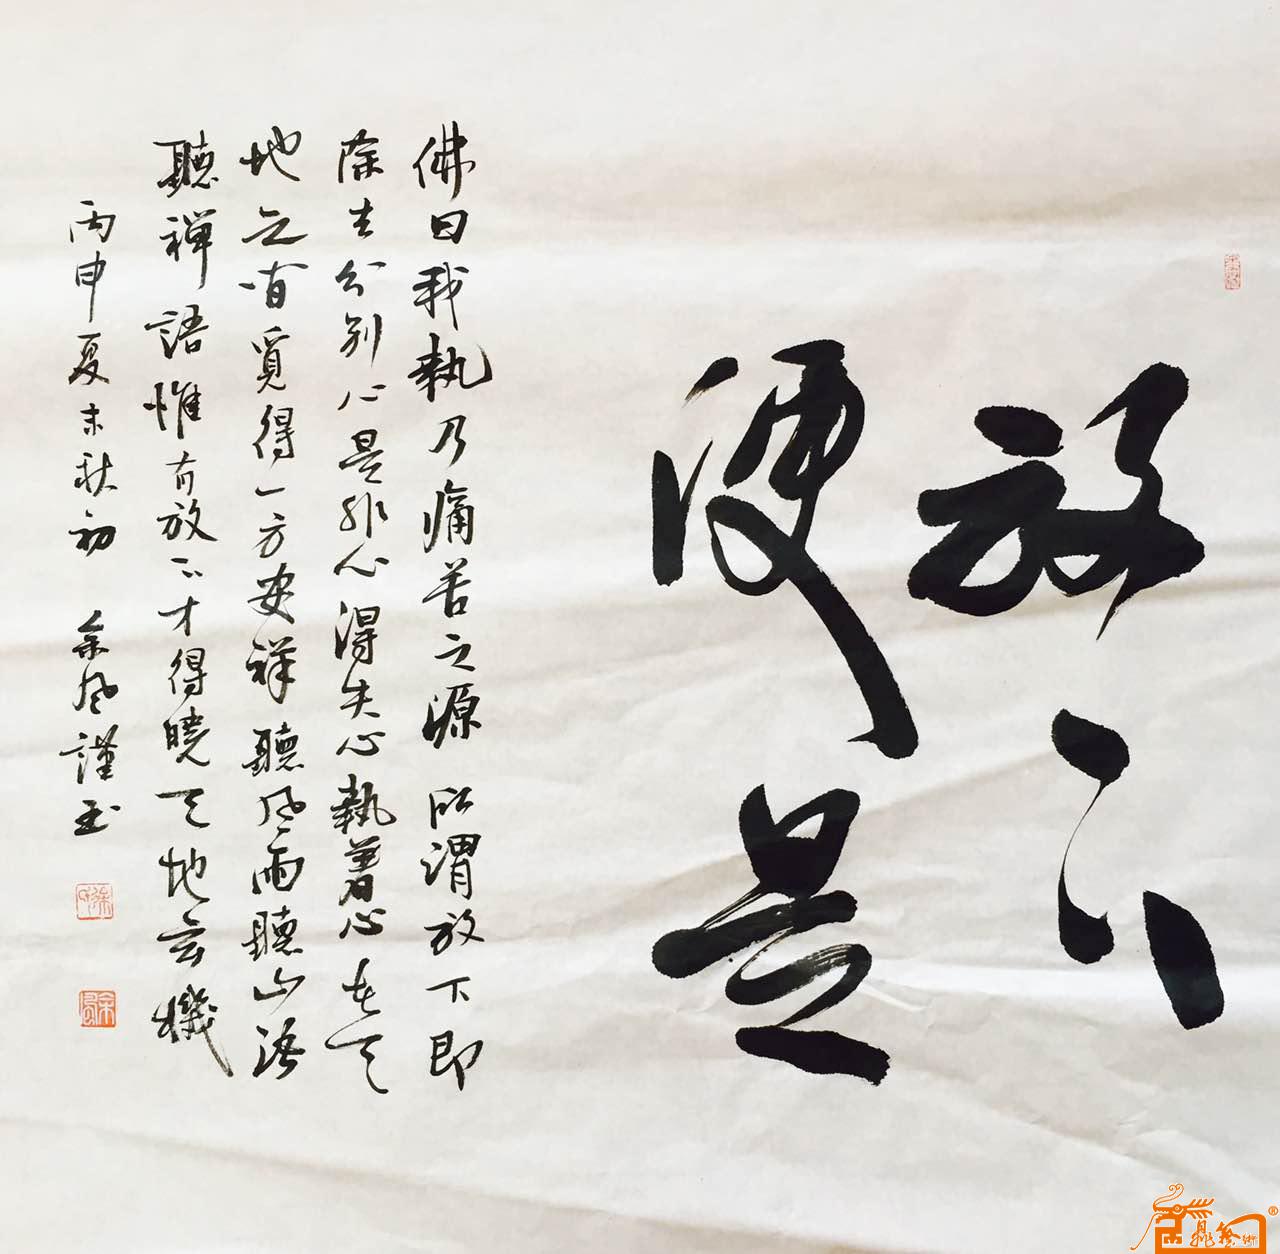 放下
便是
佛曰我執乃痛苦之源所謂放下即
除去分別心是非心得失心執著心在天
地之間覓得一方安祥聽風雨聽山語
聽禪語惟有放下才得曉天地玄機
丙申夏末秋初 余風謹書